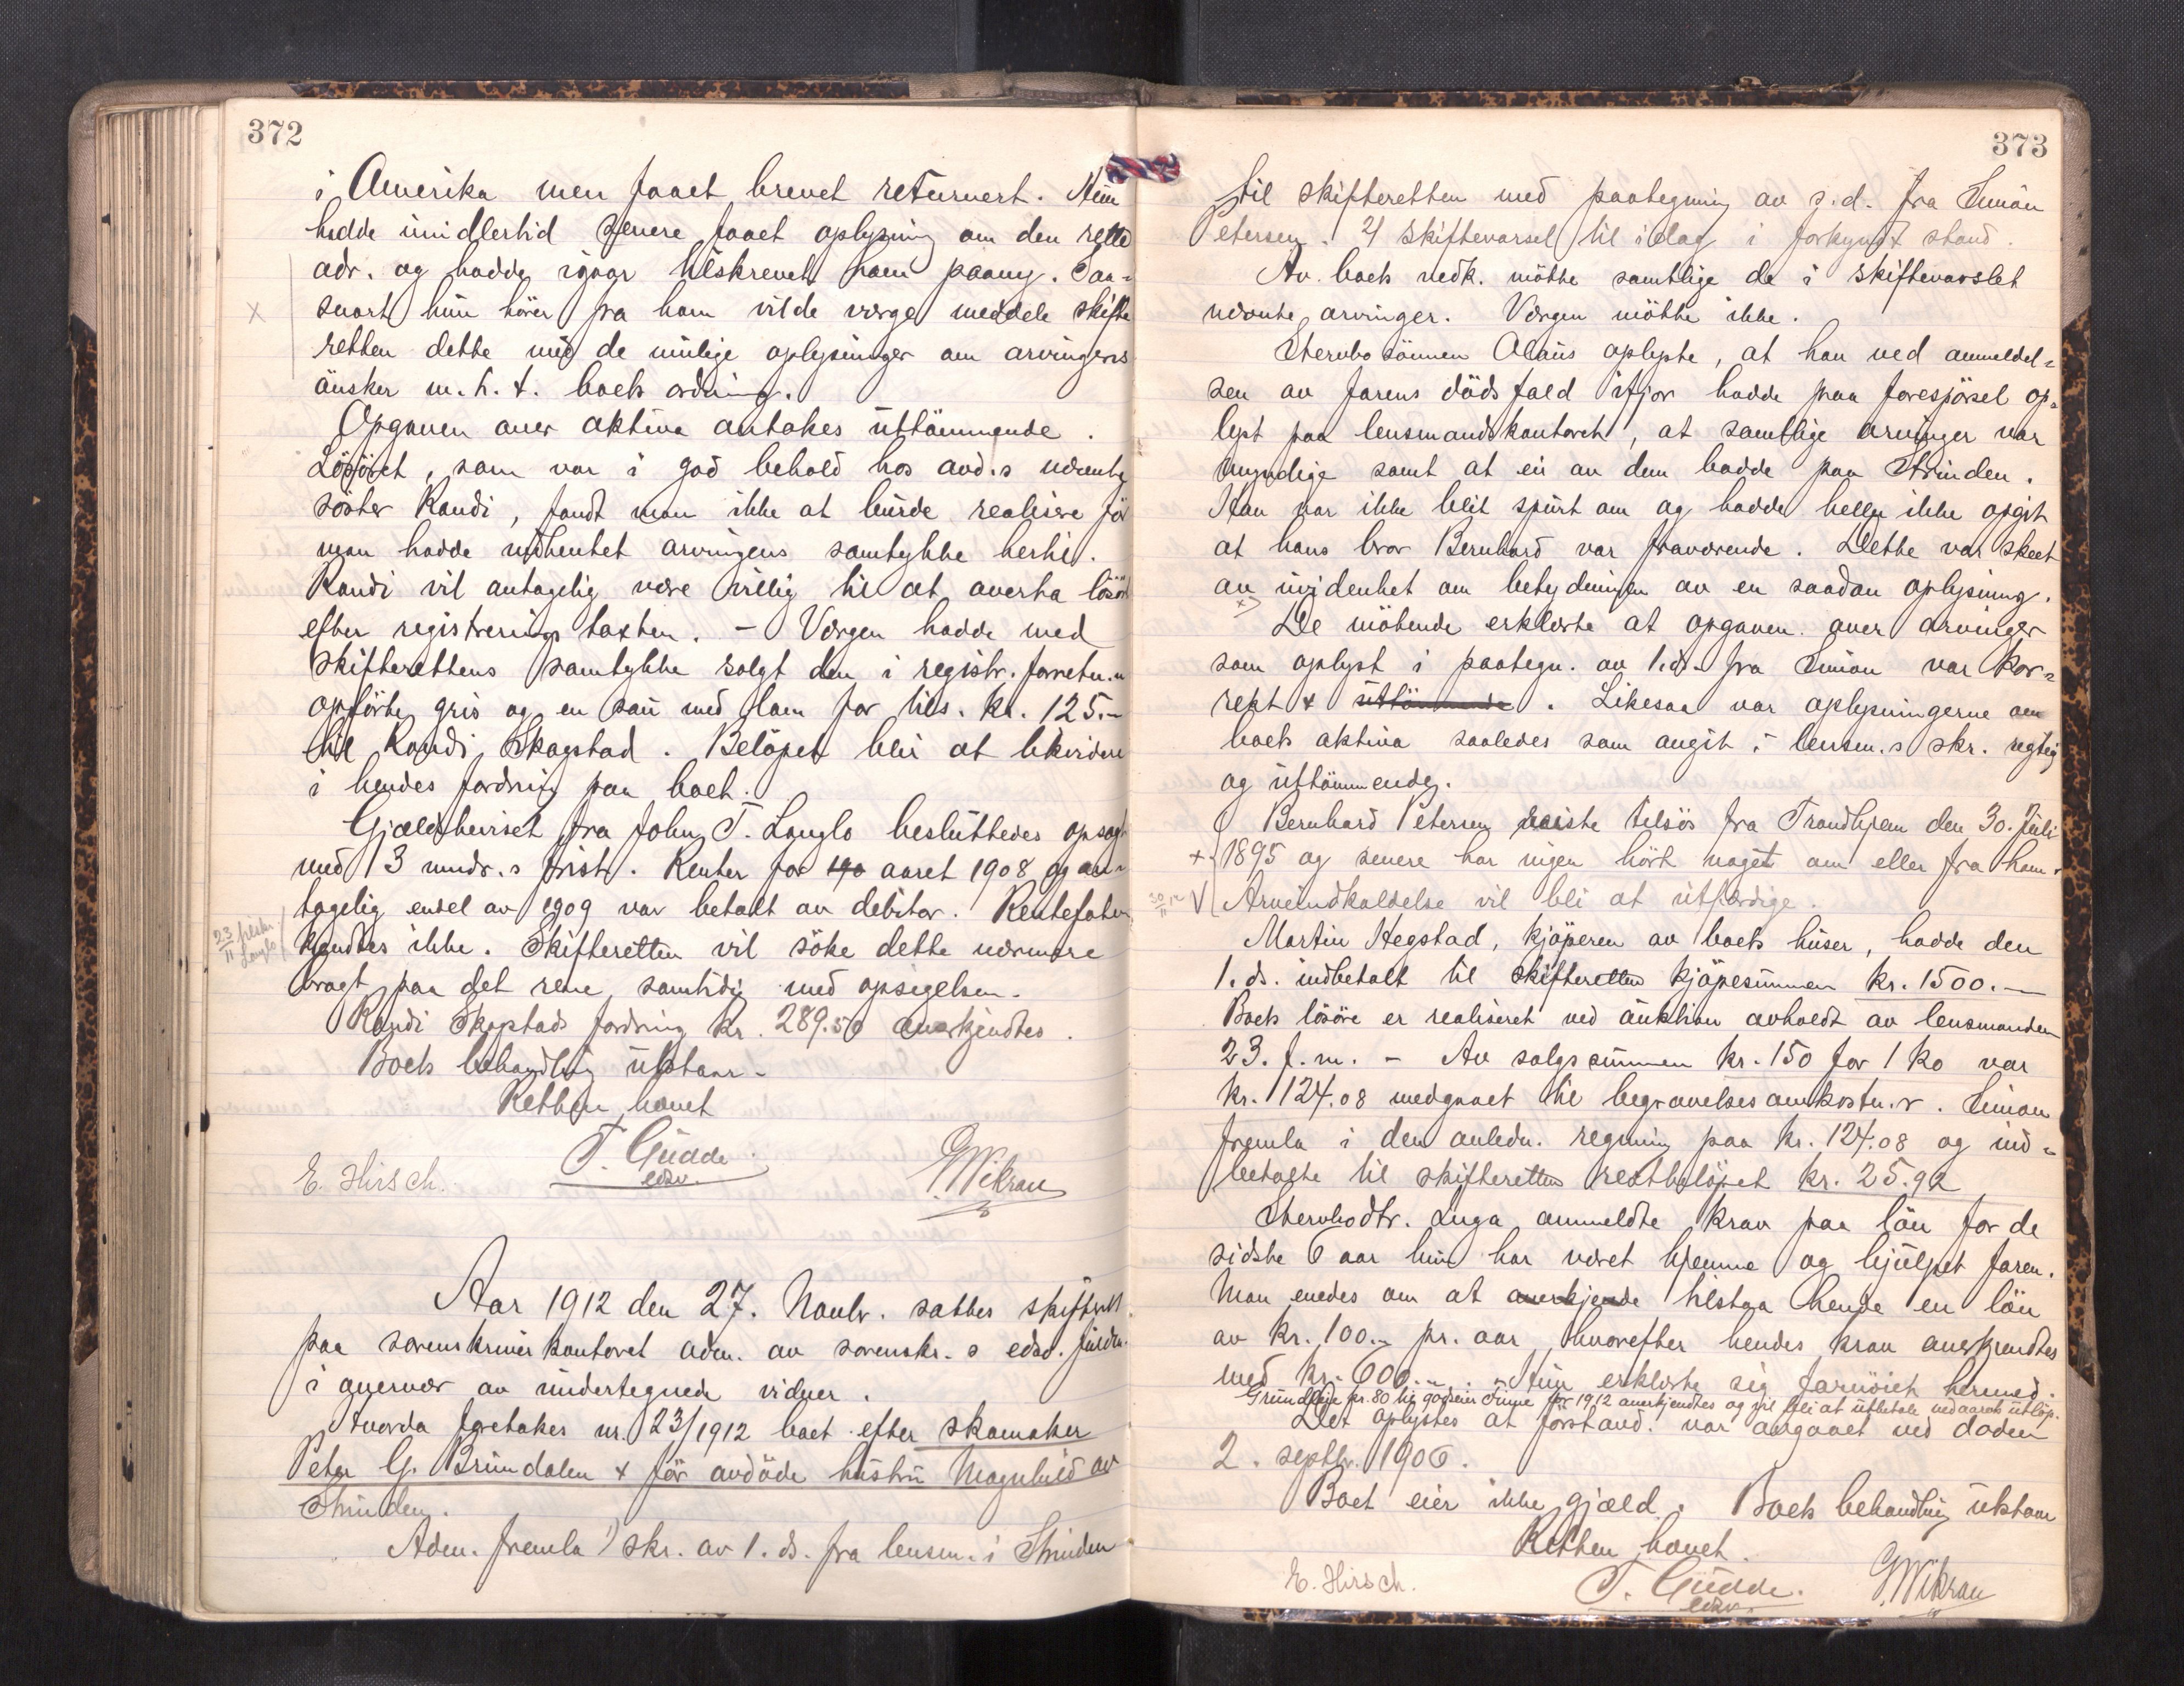 372
i Amerika men faaet brevet returnert. Hun
hadde imidlertid senere faaet oplysning om den rette
adr. og hadde igaar tilskrevet ham paany. Saa-
x
snart hun hörer fra ham vilde værge meddele skifte
retten dette med de mulige oplysninger om arvingens
önsker m. h. t. boets ordning.
Opgaven over aktiva antakes uttömmende.
Lösöret, som var i god behold hos avd.s nævnte
söster Randi, fandt man ikke at burde realisere för
man hadde indhentet arvingens samtykke hertil.
Randi vil antagelig være villig til at overta lösör
efter registreringstaxten. - Værgen hadde med
skifterettens samtykke solgt den i registr.forretn.n
opförte gris og en sau med lam for tils. kr. 125.-
til Randi Skogstad. Belöpet blir at likvidere
i hendes fordring paa boet.
Gjældsbeviset fra John T. Langlo besluttedes opsagt
med 3 mndr.s frist. Renter for aaret 1908 og an-
tagelig endel av 1909 var betalt av debitor. Rentefoten
23/11 Langlo
kjendtes ikke. Skifteretten vil söke dette nærmere
bragt paa det rene samtidig med opsigelsen.
Randi Skogstads fordring kr. 289.50 anerkjendtes.
Boets behandling utstaar.
Retten hævet
E. Hirsch. T. Gudde edsv. G. Wikran
Aar 1912 den 27. Novbr. sattes skifteret
paa sorenskriverkontoret adm. av sorenskr.s edsv. fuldm.
i overvær av undertegnede vidner.
Hvorda foretakes nr. 23/1912 boet efter skomaker
Peter G. Brundalen & för avdöde hustru Magnhild av
Strinden.
Adm. fremla 1) skr. av 1. ds. fra lensm. i Strinden
373
til skifteretten med paategning av s.d. fra Simon
Petersen. 2) skiftevarsel til idag i forkyndt stand.
Av boets vedk. mötte samtlige de i skiftevarslet
nævnte arvinger. Værgen mötte ikke.
Sterbosönnen Olaus oplyste, at han ved anmeldel-
sen av farens dödsfald ifjor hadde paa forespörsel op-
lyst paa lensmandskontoret, at samtlige arvinger var
myndige samt at en av dem bodde paa Strinden.
Han var ikke blit spurt om og hadde heller ikke opgit
at hans bror Bernhard var fraværende. Dette var skeet
av uvidenhet om betydningen av en saadan oplysning.
x)
De mötende erklærte at opgaven over arvinger
som oplyst i paategn. av 1.ds. fra Simon var kor-
rekt & uttömmende. Likesaa var oplysningerne om
boets aktiva saaledes som angit i lensm.s skr. rigtig
og uttömmende.
Bernhard Petersen reiste tilsjös fra Trondhjem den 30. Juli
x. 1895 og senere har ingen hört noget om eller fra ham.
30/11 12 V Arveindkaldelse vil bli at utfærdige.
Martin Hegstad, kjöperen av boets huser, hadde den
1. ds. indbetalt til skifteretten kjöpesummen kr. 1500.-
Boets lösöre er realiseret ved auktion avholdt av lensmanden
23. f. m. - Av salgssummen kr. 150 for 1 ko var
kr. 124.08 medgaaet til begravelsesomkostn.r. Simon
fremla i den anledn. regning paa kr. 124.08 og ind-
betalte til skifteretten restbelöpet kr. 25.92
Stervbodtr. Inga anmeldte krav paa lön for de
sidste 6 aar hun har været hjemme og hjulpet faren.
Man enedes om at anerkjende tilstaa hende en lön
av kr. 100.- pr. aar, hvorefter hendes krav anerkjendtes
med kr. 600.-. Hun erklærte sig fornöiet hermed.
Grundleie kr. 80 til godseier for 1912 anerkjendtes og vil bli at utbetale ved aarets utlöp.
Det oplystes at förstavd. var avgaaet ved döden
2. septbr. 1906.
Boet eier ikke gjæld. Boets behandling utstaar
Retten hævet.
E. Hirsch. T. Gudde. edsv. G. Wikran